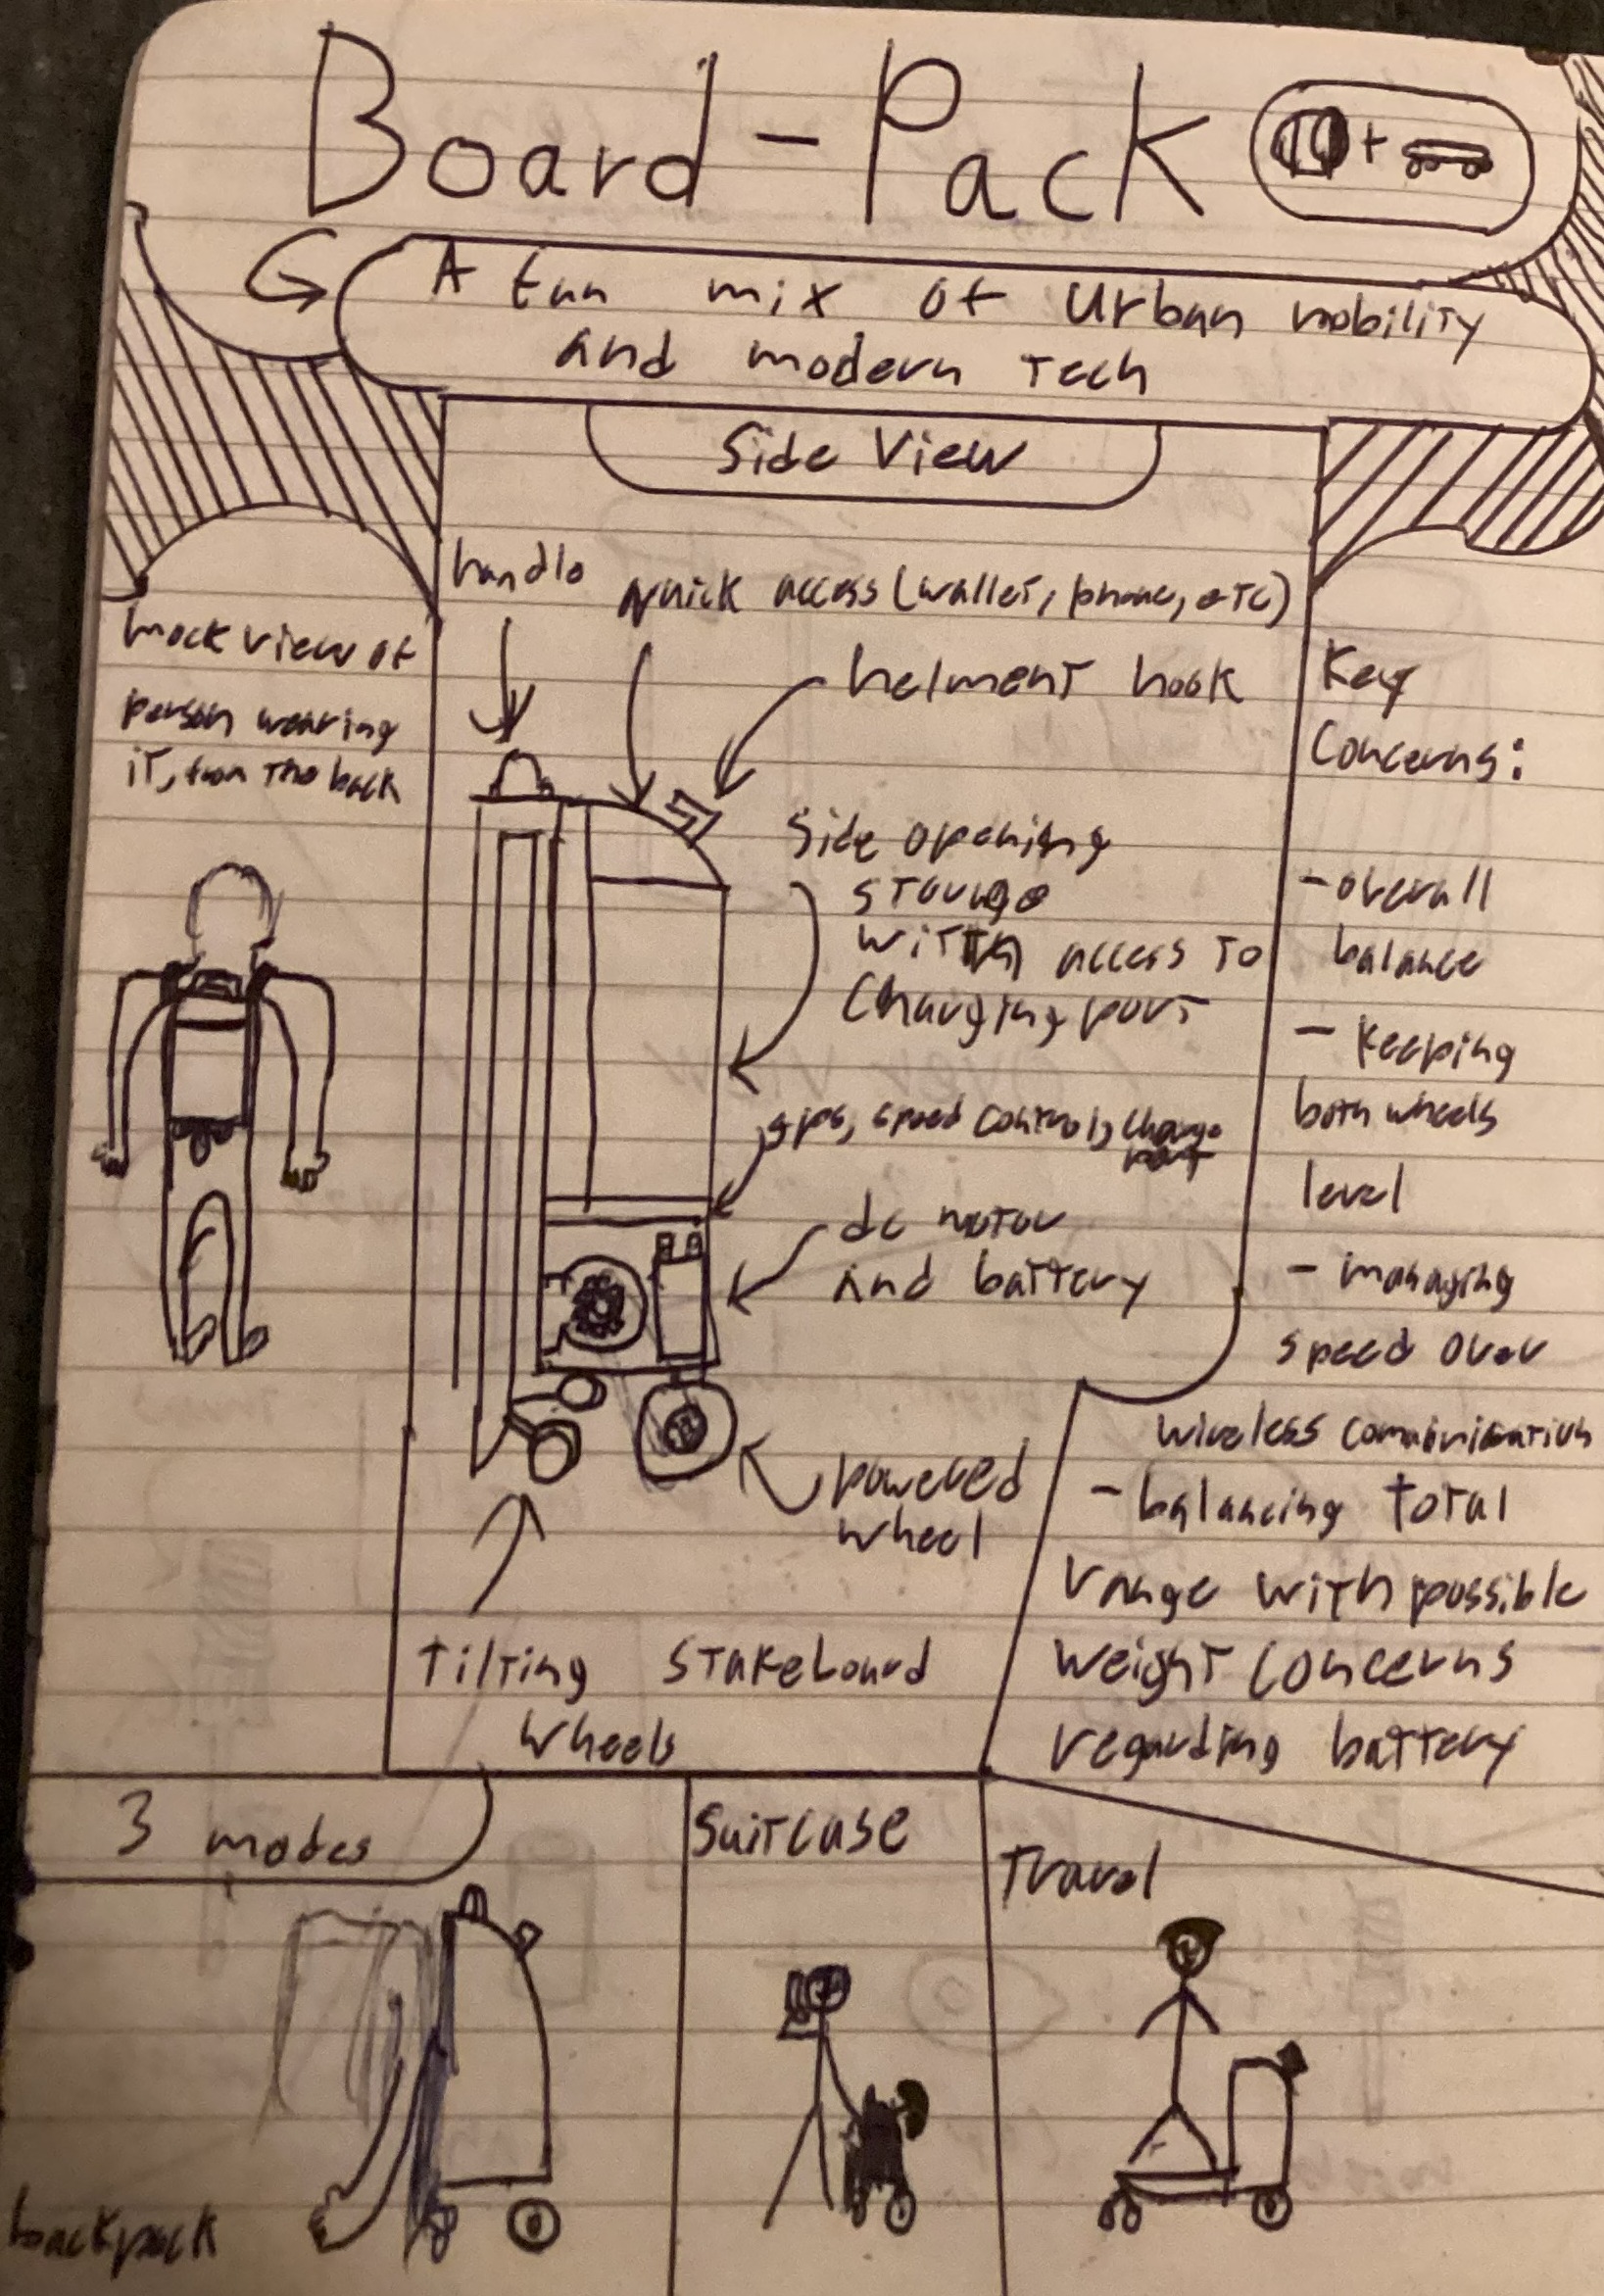 Board-Pack
+
A fun mix of Urban mobility
and modern tech
Side View
handle
quick access (wallet, phone, etc)
helment hook
mock view of
person wearing
it, from the back
Side opening
storage
with access to
Charging port
gps, speed control, charge
port
dc motor
and battery
powered
wheel
tilting stakeboard
wheels
Key
Concerns:
- overall
balance
- Keeping
both wheels
level
- managing
speed over
wireless communication
- balancing total
range with possible
weight concerns
regarding battery
3 modes
backpack
Suitcase
Travel